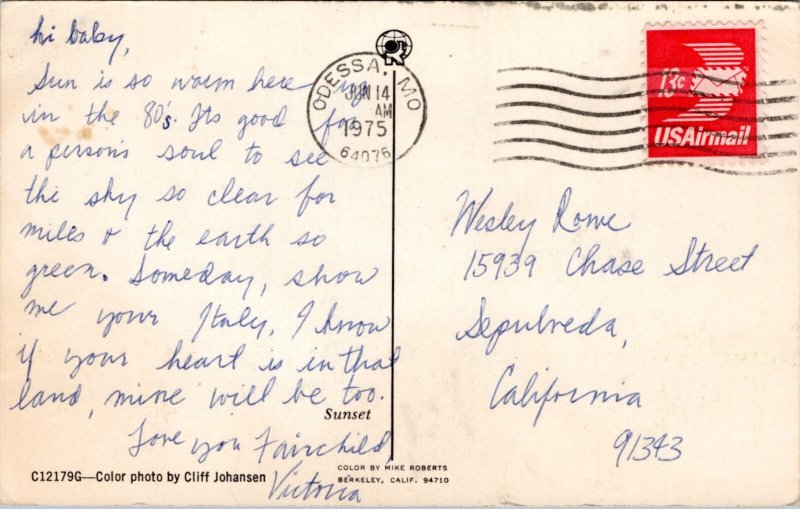 hi baby,
Sun is so warm here
in the 80's. Its good for
a person's soul to see
the sky so clear for
miles & the earth so
green. Someday, show
me your Italy, I know
if your heart is in that
land, mine will be too.
Love you Fairchild,
Victoria
Sunset
C12179G—Color photo by Cliff Johansen
COLOR BY MIKE ROBERTS
BERKELEY, CALIF. 94710
ODESSA, MO
JUN 14
AM
1975
64076
13c
USAirmail
Wesley Rowe
15939 Chase Street
Sepulveda,
California
91343